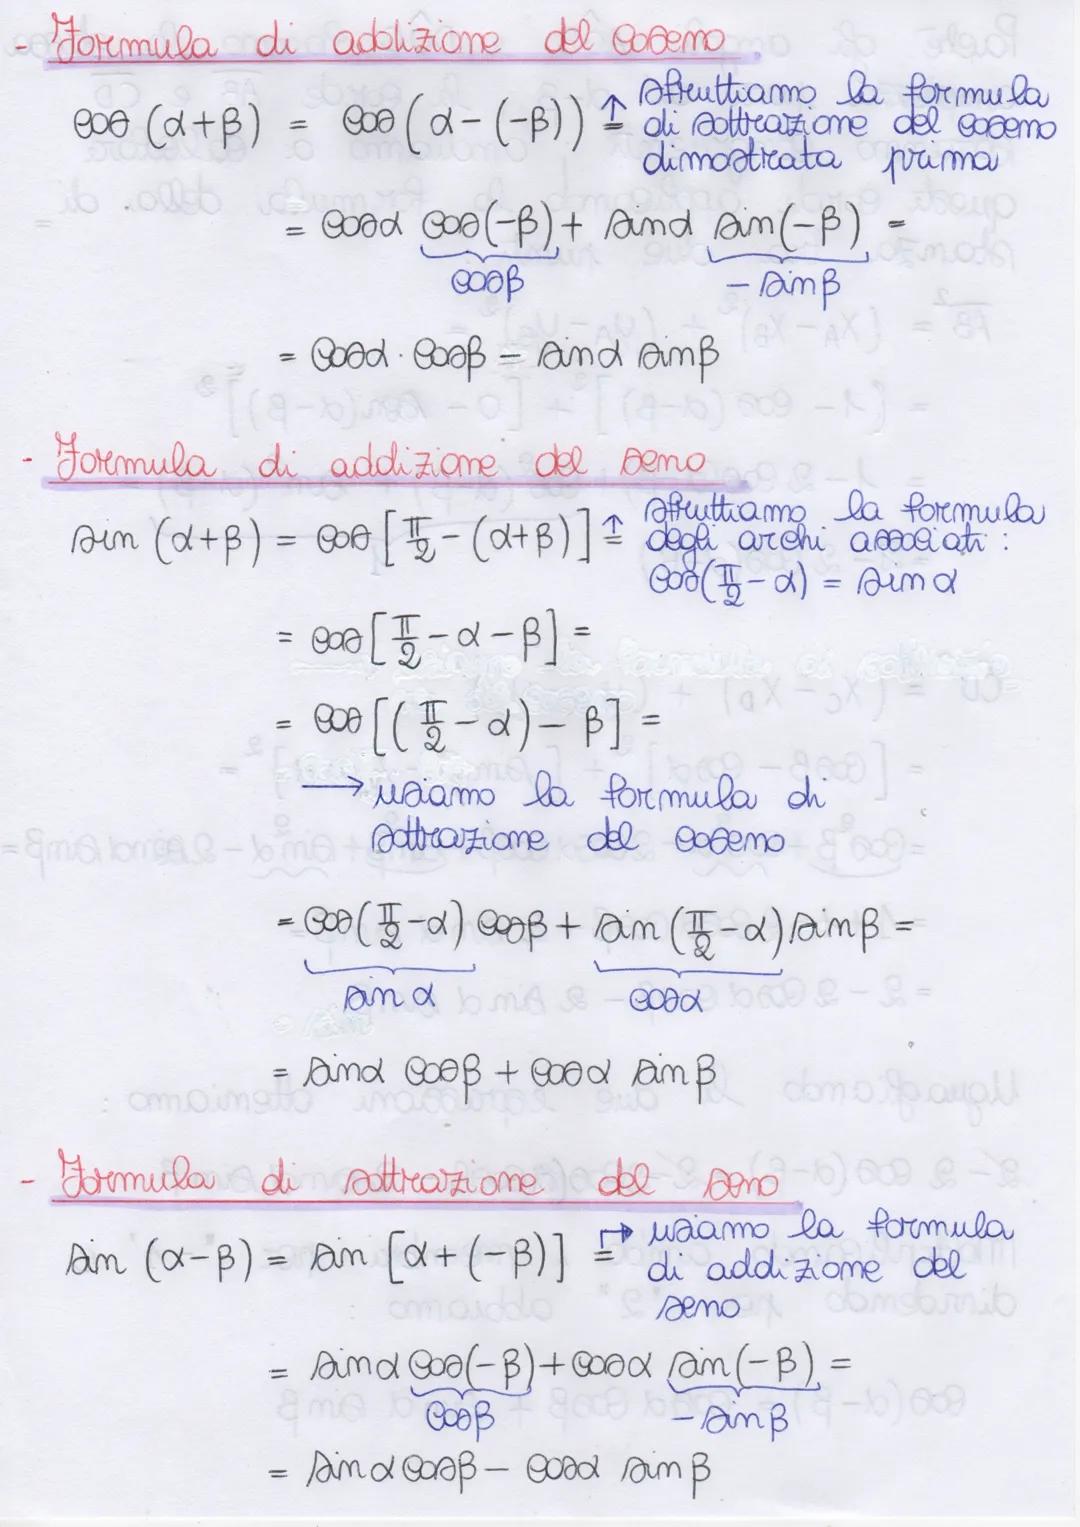 - Formula di addizione del coseno
cos (α+β) = cos (α-(-β)) =
↑ sfruttiamo la formula
di sottrazione del coseno
dimostrata prima
= cosα cos(-β) + sinα sin(-β) =
cosβ - sinβ
= cosα · cosβ - sinα sinβ
- Formula di addizione del seno
sin (α+β) = cos [π/2 - (α+β)] =
↑ sfruttiamo la formula
degli archi associati :
cos(π/2 - α) = sin α
= cos [π/2 - α - β] =
= cos [(π/2 - α) - β] =
→ usiamo la formula di
sottrazione del coseno
= cos(π/2 - α) cosβ + sin (π/2 - α) sinβ =
sin α cosα
= sinα cosβ + cosα sinβ
- Formula di sottrazione del seno
sin (α-β) = sin [α + (-β)] =
→ usiamo la formula
di addizione del
seno
= sinα cos(-β) + cosα sin(-β) =
cosβ - sinβ
= sinα cosβ - cosα sinβ